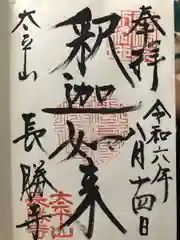 奉拝
令和六年
八月十四日
釈迦如来
太平山
長勝寺